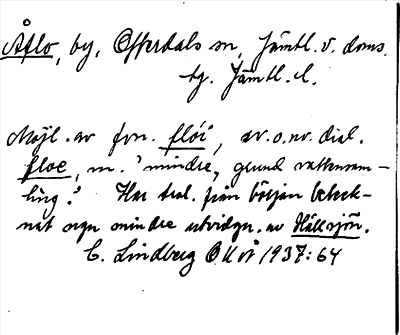 Åflo, by, Offerdals sn, Jämtl. v. doms.
tg. Jämtl. l.
Möjl. av fvn. flói, sv. o. nv. dial.
floe, m. 'mindre, grund vattensam-
ling'. Har trol. från början beteck-
nat ngn mindre utvidgn. av Hällsjön.
C. Lindberg OKvÅ 1937:64